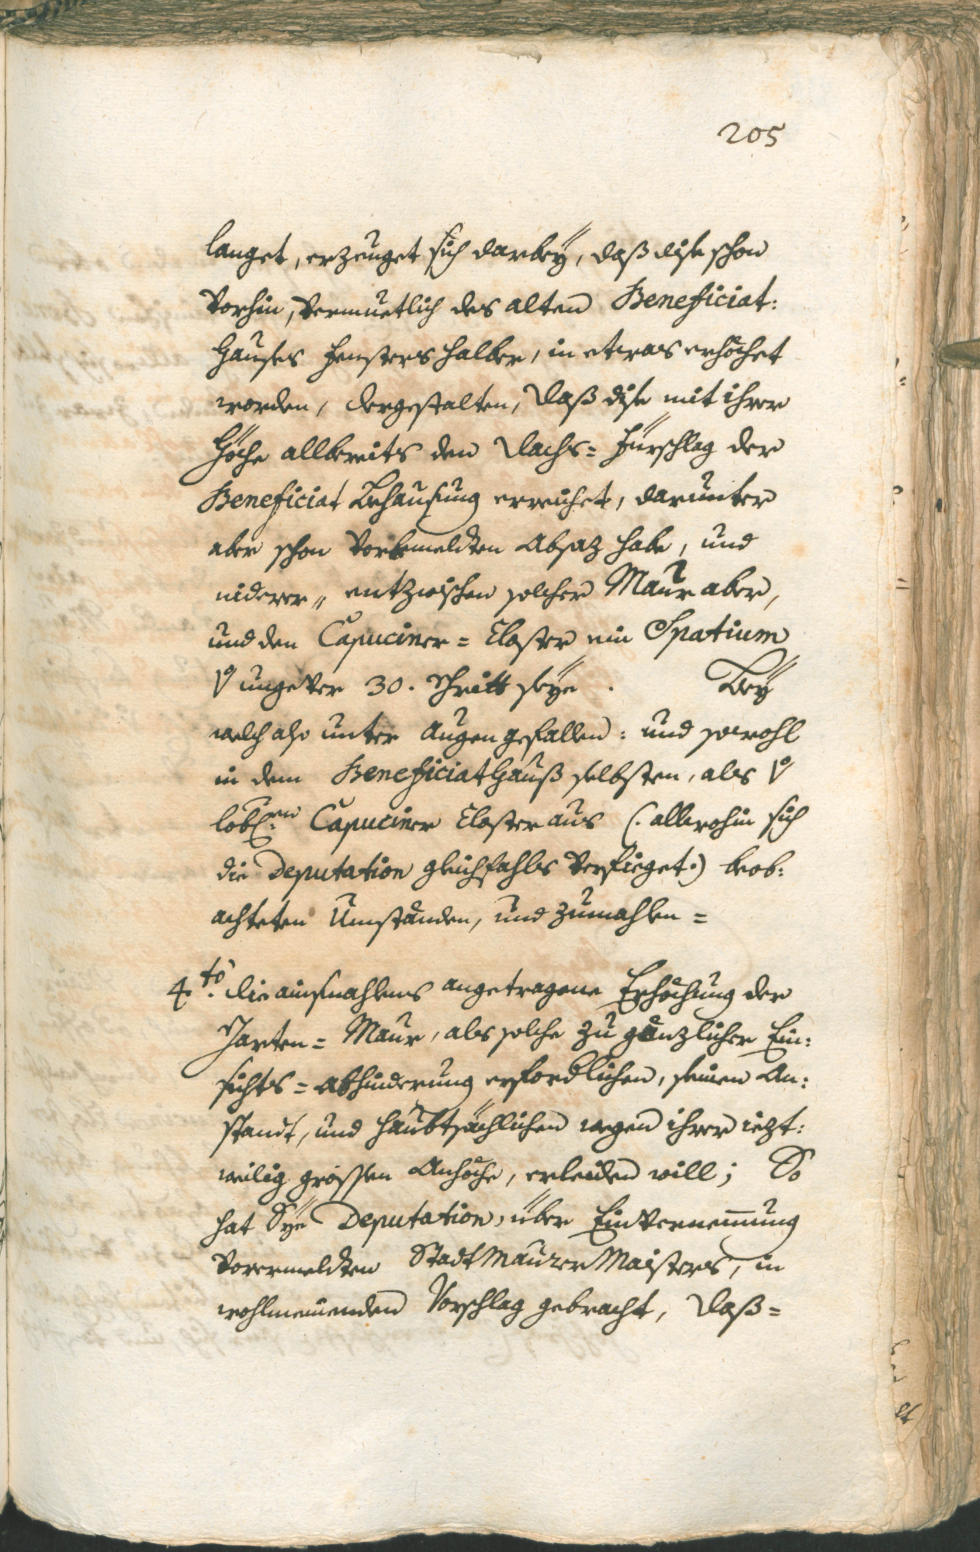 205
langet, erzeuget sich darbeÿ, daß dise schon
Vorhin, Vermuetlich des alten Beneficiat:
Hauses Fensters halber, in etwas erhöchet
worden, dergestalten, daß dise mit ihrer
Höche allbereits den Dachs= Fürschlag der
Beneficiat Behausung erreichet, darunter
aber schon Vorbemeldten Absaz habe, und
niderer„ entzwischen solcher Maur aber,
und den Capuciner= Closter ein Spatium
V° ungever 30. Schritt seÿe. Beÿ
welch also unter Augen gefallen: und sowohl
in dem Beneficiat Hauß selbsten, als V°
löbl:en Capuciner Closter aus (: allwohin sich
die Deputation gleichfahls Verfüeget:) beob:
achteten Umständen, und zumahlen=
4.to die ainsmahlens angetragene Erhöchung der
Garten= Maur, als solche zu gänzlicher Ein:
sichts= abhinderung erfordlichen, seinen An:
standt, und haubtsächlichen wegen ihrer iezt:
weilig grossen Anhöche, erleiden will; So
hat Sÿe Deputation, über Einvernemmung
Vorermeldten Stadt Maurer Maisters, in
wohlmeinenden Vorschlag gebracht, daß=